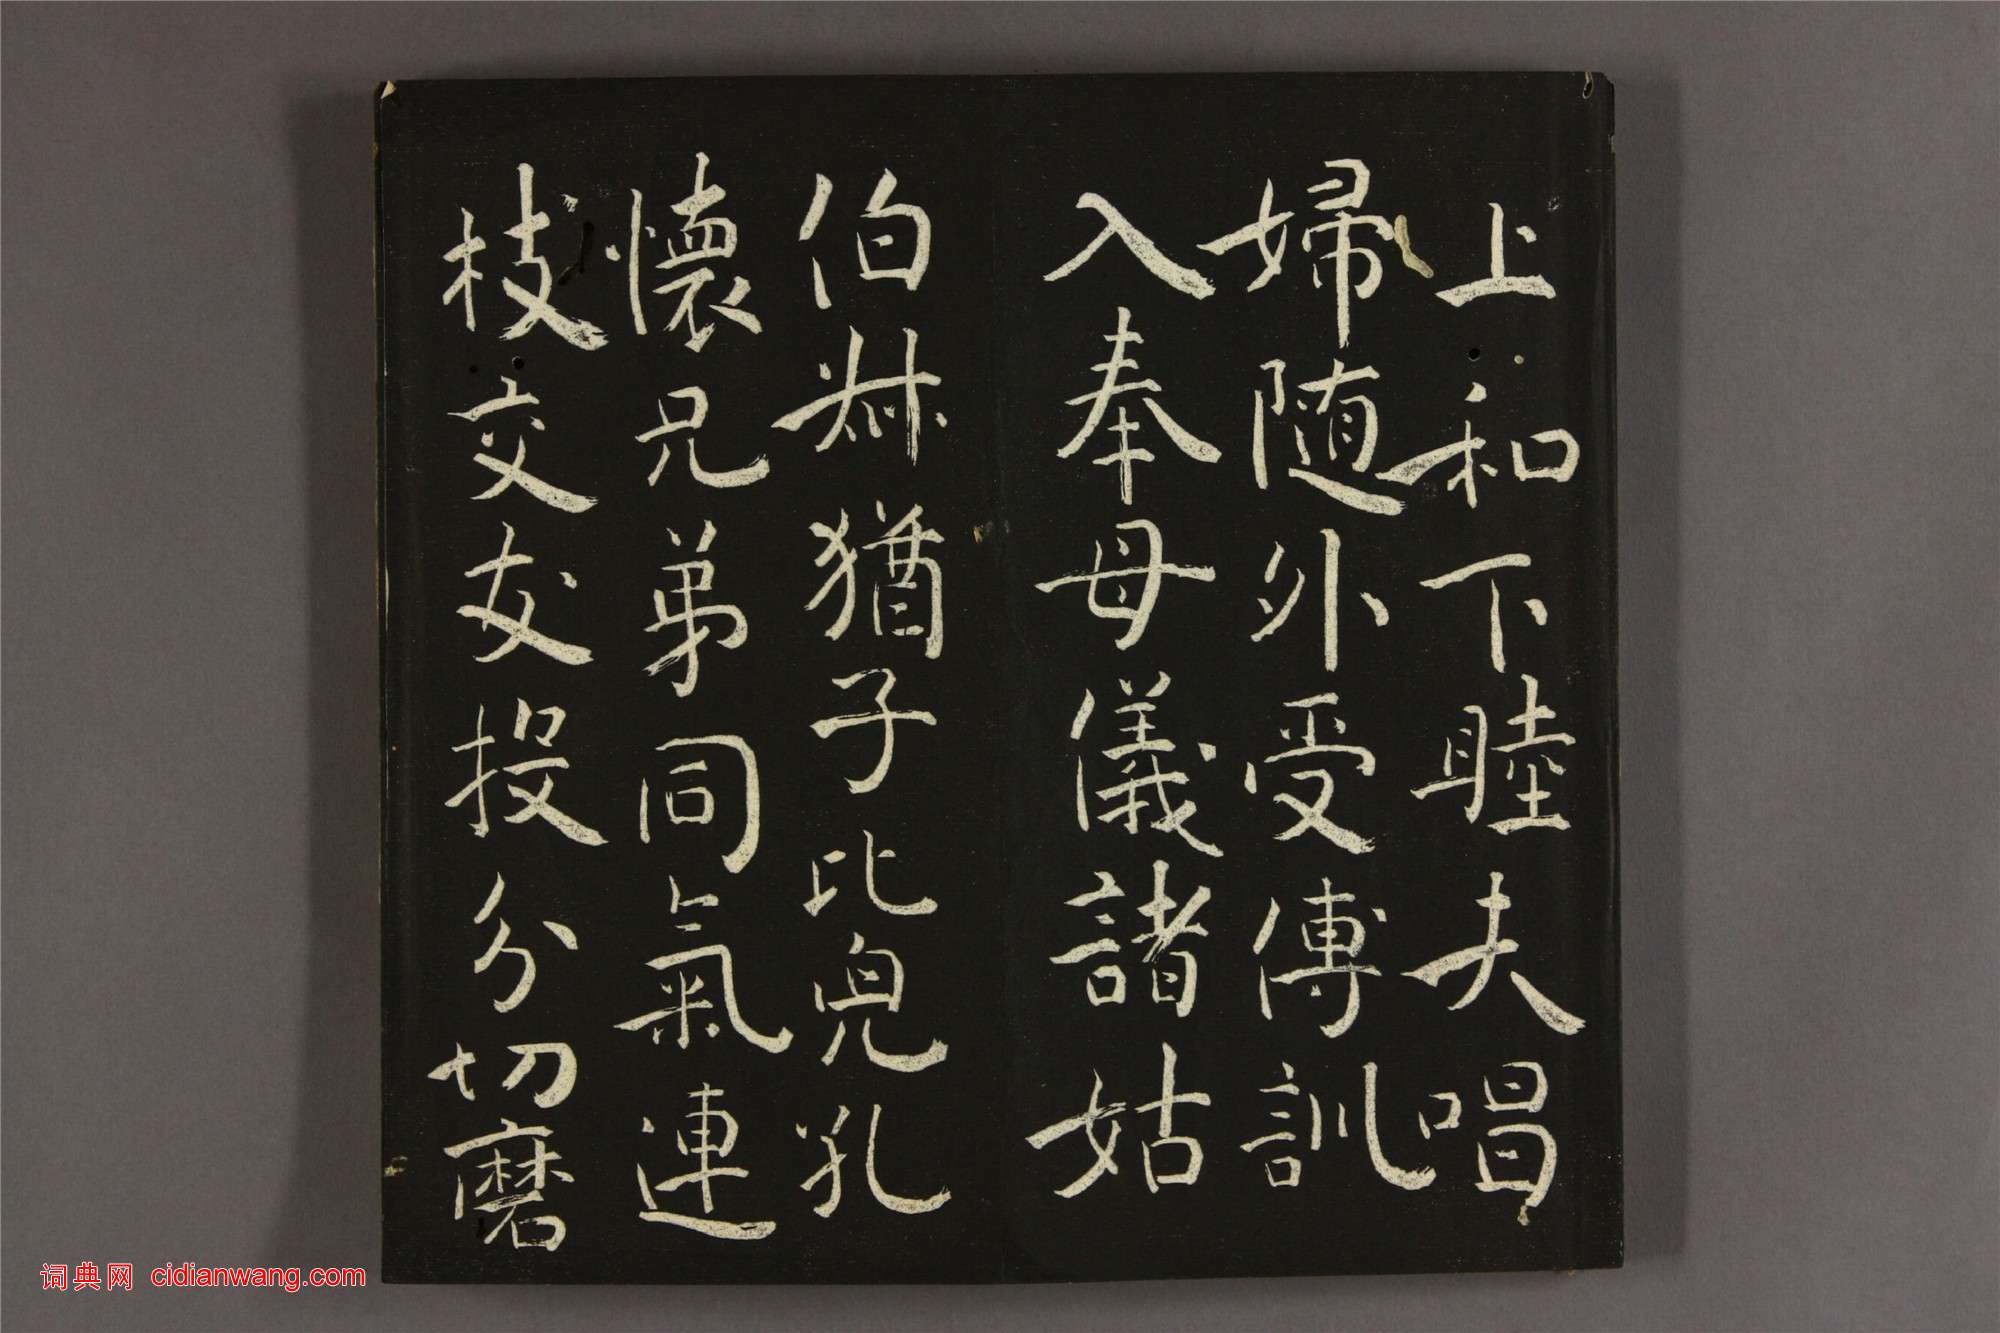 上和下睦夫唱
婦随外受傅訓
入奉母儀諸姑
伯叔猶子比兒孔
懷兄弟同氣連
枝交友投分切磨
词典网 cidianwang.com